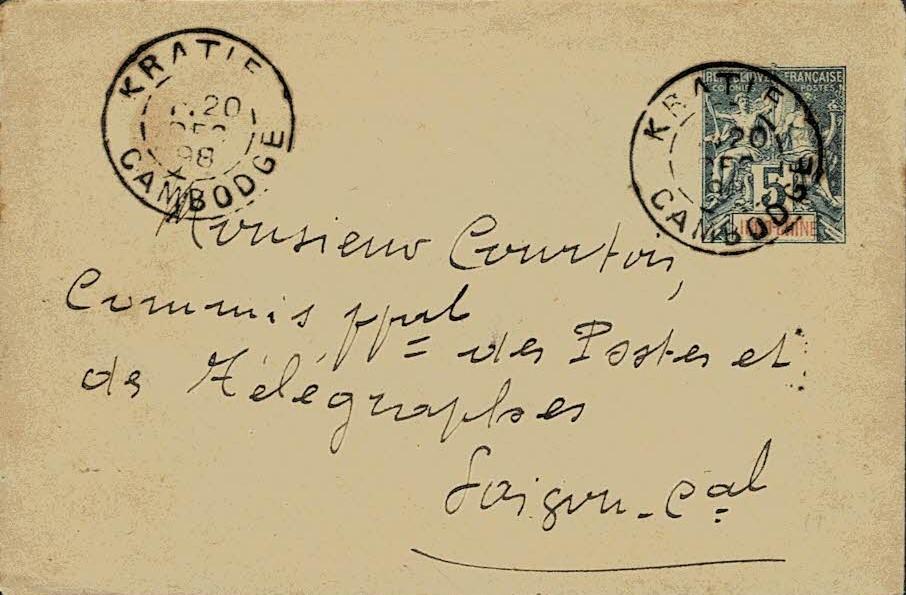 KRATIE
20
DEC
98
CAMBODGE
KRATIE
20
DEC
CAMBODGE
REPUBLIQUE FRANÇAISE
COLONIES POSTES
5
INDO-CHINE
Monsieur Courtois,
Commis ppal des Postes et
des Télégraphes
Saigon-Cal